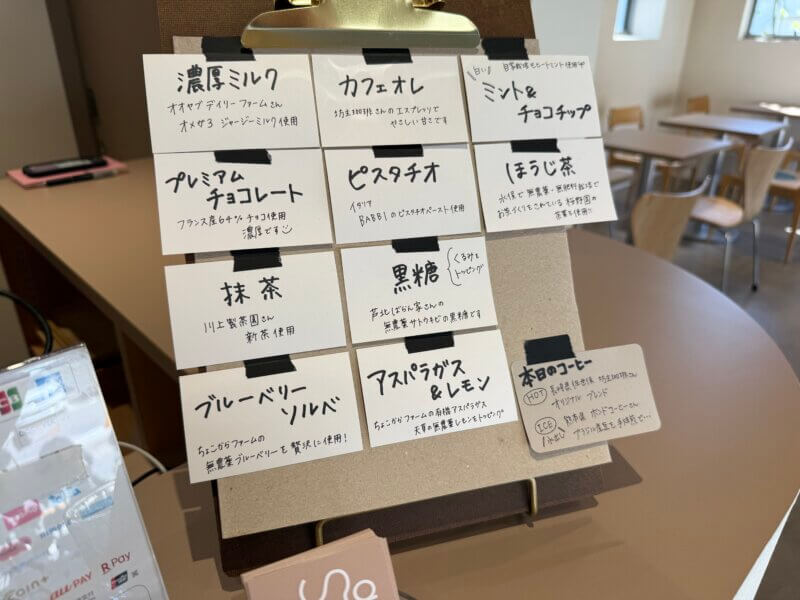 濃厚ミルク
オオヤブデイリーファームさん
オメガ3 ジャージーミルク使用
カフェオレ
坊主珈琲さんのエスプレッソで
やさしい甘さです
白い
ミント&
チョコチップ
プレミアム
チョコレート
フランス産64%チョコ使用
濃厚です
ピスタチオ
イタリア
BABBIのピスタチオペースト使用
ほうじ茶
水俣で無農薬・無肥料栽培で
お茶づくりをされている桜野園の
茶葉を使用
抹茶
川上製茶園さん
新茶使用
黒糖
くるみを
トッピング
芦北ばらん家さんの
無農薬サトウキビの黒糖です
ブルーベリー
ソルベ
ちょこからファームの
無農薬ブルーベリーを贅沢に使用!
アスパラガス
&レモン
ちょこからファームの有機アスパラガス
天草の無農薬レモンをトッピング
本日のコーヒー
HOT
長崎県佐世保 坊主珈琲さん
オリジナル ブレンド
ICE
水出し
熊本県 ポンドコーヒーさん
ブラジル産豆を
au PAY
R Pay